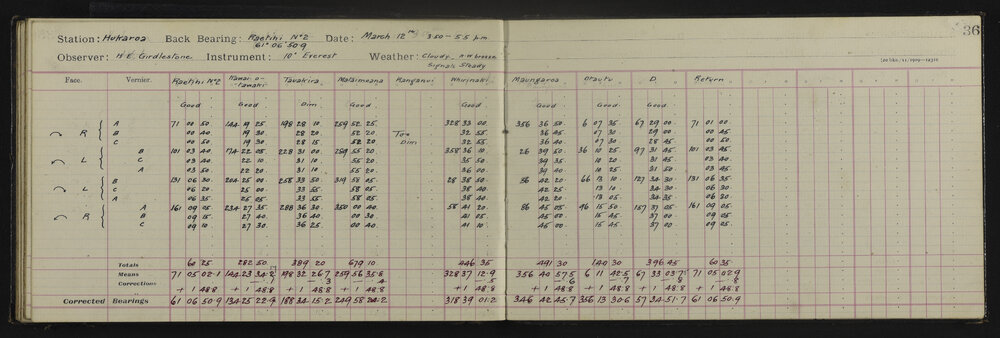 36
Station: Hukaroa Back Bearing: Raetihi No 2 Date: March 12th 3 50 - 5 5 pm
61° 06 50.9
Observer: H E. Girdlestone Instrument: 10" Everest Weather: Cloudy. N.W. breeze
Signals Steady
Face. Vernier. Raetihi No 2 Tawakira Mataimoana Ranganui Whorinaki Maungaroa Otautu D Return
Good Good Dim Good Good Good Good Good Good
R A 71 00 50 144 19 25 198 28 10 259 52 25 328 33 00 356 36 50 6 07 35 67 29 00 71 01 00
B 00 40 19 30 28 20 52 20 Too 32 55 36 45 07 30 29 00 00 45
C 00 50 19 30 28 15 52 20 Dim 32 55 36 40 07 30 28 45 00 50
L B 101 03 40 174 22 05 228 31 00 289 55 20 358 36 10 26 39 50 36 10 25 97 31 45 103 03 45
C 03 40 22 10 31 10 55 20 35 50 39 35 10 20 31 45 03 40
A 03 50 22 20 31 10 55 20 36 00 39 40 10 25 31 50 03 45
L B 131 06 30 204 25 00 258 33 50 319 58 05 28 38 50 86 42 20 66 13 10 127 34 30 131 06 35
C 06 20 25 00 33 55 58 05 38 40 42 25 13 10 34 30 06 30
A 06 35 25 05 33 55 58 05 38 40 42 20 13 05 34 35 06 30
R A 161 09 05 234 27 35 288 36 30 350 00 40 58 41 20 86 45 05 46 15 50 157 37 05 161 09 05
B 09 15 27 40 36 40 00 30 41 05 45 00 15 45 37 00 09 05
C 09 10 27 30 36 25 00 40 41 10 45 00 15 45 37 00 09 05
Totals 60 25 282 50 389 20 679 10 446 35 491 30 140 30 396 45 60 35
Means 71 05 02.1 144 23 34.2 198 32 26.7 259 56 35.8 328 37 12.9 356 40 57.5 6 11 42.5 67 33 03.7 71 05 02.9
Corrections - .1 - .3 - .4 - .5 - .6 - .7 - .8 - .8
+ 1 48.8 + 1 48.8 + 1 48.8 + 1 48.8 + 1 48.8 + 1 48.8 + 1 48.8 + 1 48.8 + 1 48.8
Corrected Bearings 61 06 50.9 134 25 22.9 188 34 15.2 249 58 24.2 318 39 01.2 346 42 45.7 356 13 30.6 57 34 51.7 61 06 50.9